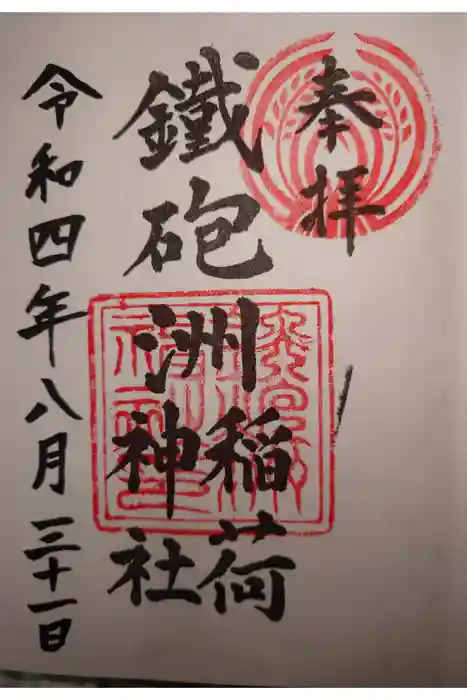 奉拝
鐵砲洲稲荷
神社
令和四年八月三十一日